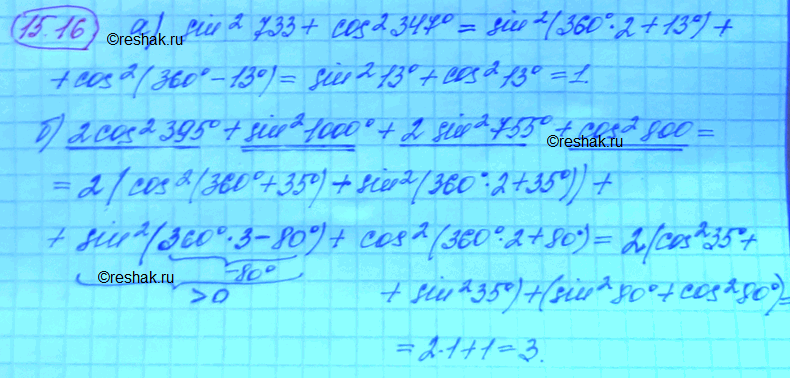 15.16 а) sin² 733 + cos² 347° = sin²(360°·2+13°) +
+ cos²(360°-13°) = sin² 13° + cos² 13° = 1.
©reshak.ru
б) 2cos² 395° + sin² 1000° + 2 sin² 755° + cos² 800 =
©reshak.ru
= 2(cos²(360°+35°) + sin²(360°·2+35°)) +
+ sin²(360°·3-80°) + cos²(360°·2+80°) = 2·(cos² 35° +
-80°
©reshak.ru
>0
+ sin² 35°) + (sin² 80° + cos² 80°) =
©reshak.ru
= 2·1+1=3.